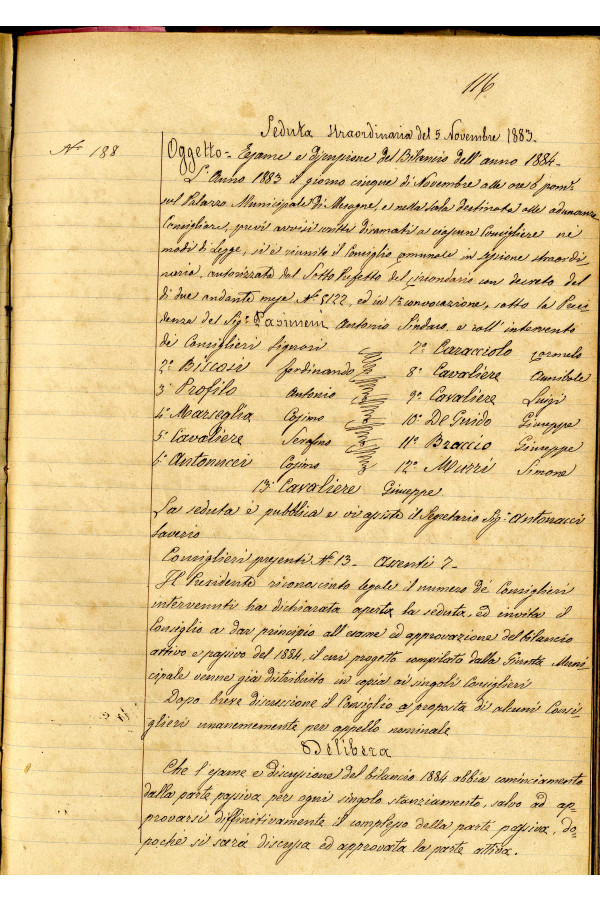 116
Seduta straordinaria del 5 Novembre 1883.
N° 188
Oggetto = Esame e discussione del Bilancio dell'anno 1884.
L'Anno 1883 il giorno cinque di Novembre alle ore 6 pom.
sul Palazzo Municipale di Mesagne, e nella sala destinata alle adunanze
Consigliari, previ avvisi scritti diramati a ciascun Consigliere nei
modi di Legge, si è riunito il Consiglio comunale in sessione straordi
naria, autorizzata dal Sotto Prefetto del circondario con decreto del
di due andante mese N° 5122, ed in 1a convocazione, sotto la Presi
denza del Sig. Pasimeni Antonio Sindaco, e coll'intervento
de' Consiglieri Signori
2° Biscosi Ferdinando
3° Profilo Antonio
4° Marseglia Cosimo
5° Cavaliere Serafino
6° Antonucci Cosimo
7° Caracciolo Carmelo
8° Cavaliere Annibale
9° Cavaliere Luigi
10° De Guido Giuseppe
11° Braccio Giuseppe
12° Murri Simone
13° Cavaliere Giuseppe
La seduta è pubblica e vi assiste il Segretario Sig. Antonacci
Saverio
Consiglieri presenti N° 13 - Assenti 7 -
Il Presidente riconosciuto legale il numero de' Consiglieri
intervenuti ha dichiarata aperta la seduta, ed invita il
Consiglio a dar principio all'esame ed approvazione del bilancio
attivo e passivo del 1884, il cui progetto compilato dalla Giunta Muni
cipale venne già distribuito in copia ai singoli Consiglieri
Dopo breve discussione il Consiglio a proposta di alcuni Consi-
glieri unanemente per appello nominale
Delibera
Che l'esame e discussione del bilancio 1884 abbia cominciamento
dalla parte passiva per ogni singolo stanziamento, salvo ad ap-
provarsi diffinitivamente il complesso della parte passiva, do-
pochè si sarà discussa ed approvata la parte attiva.